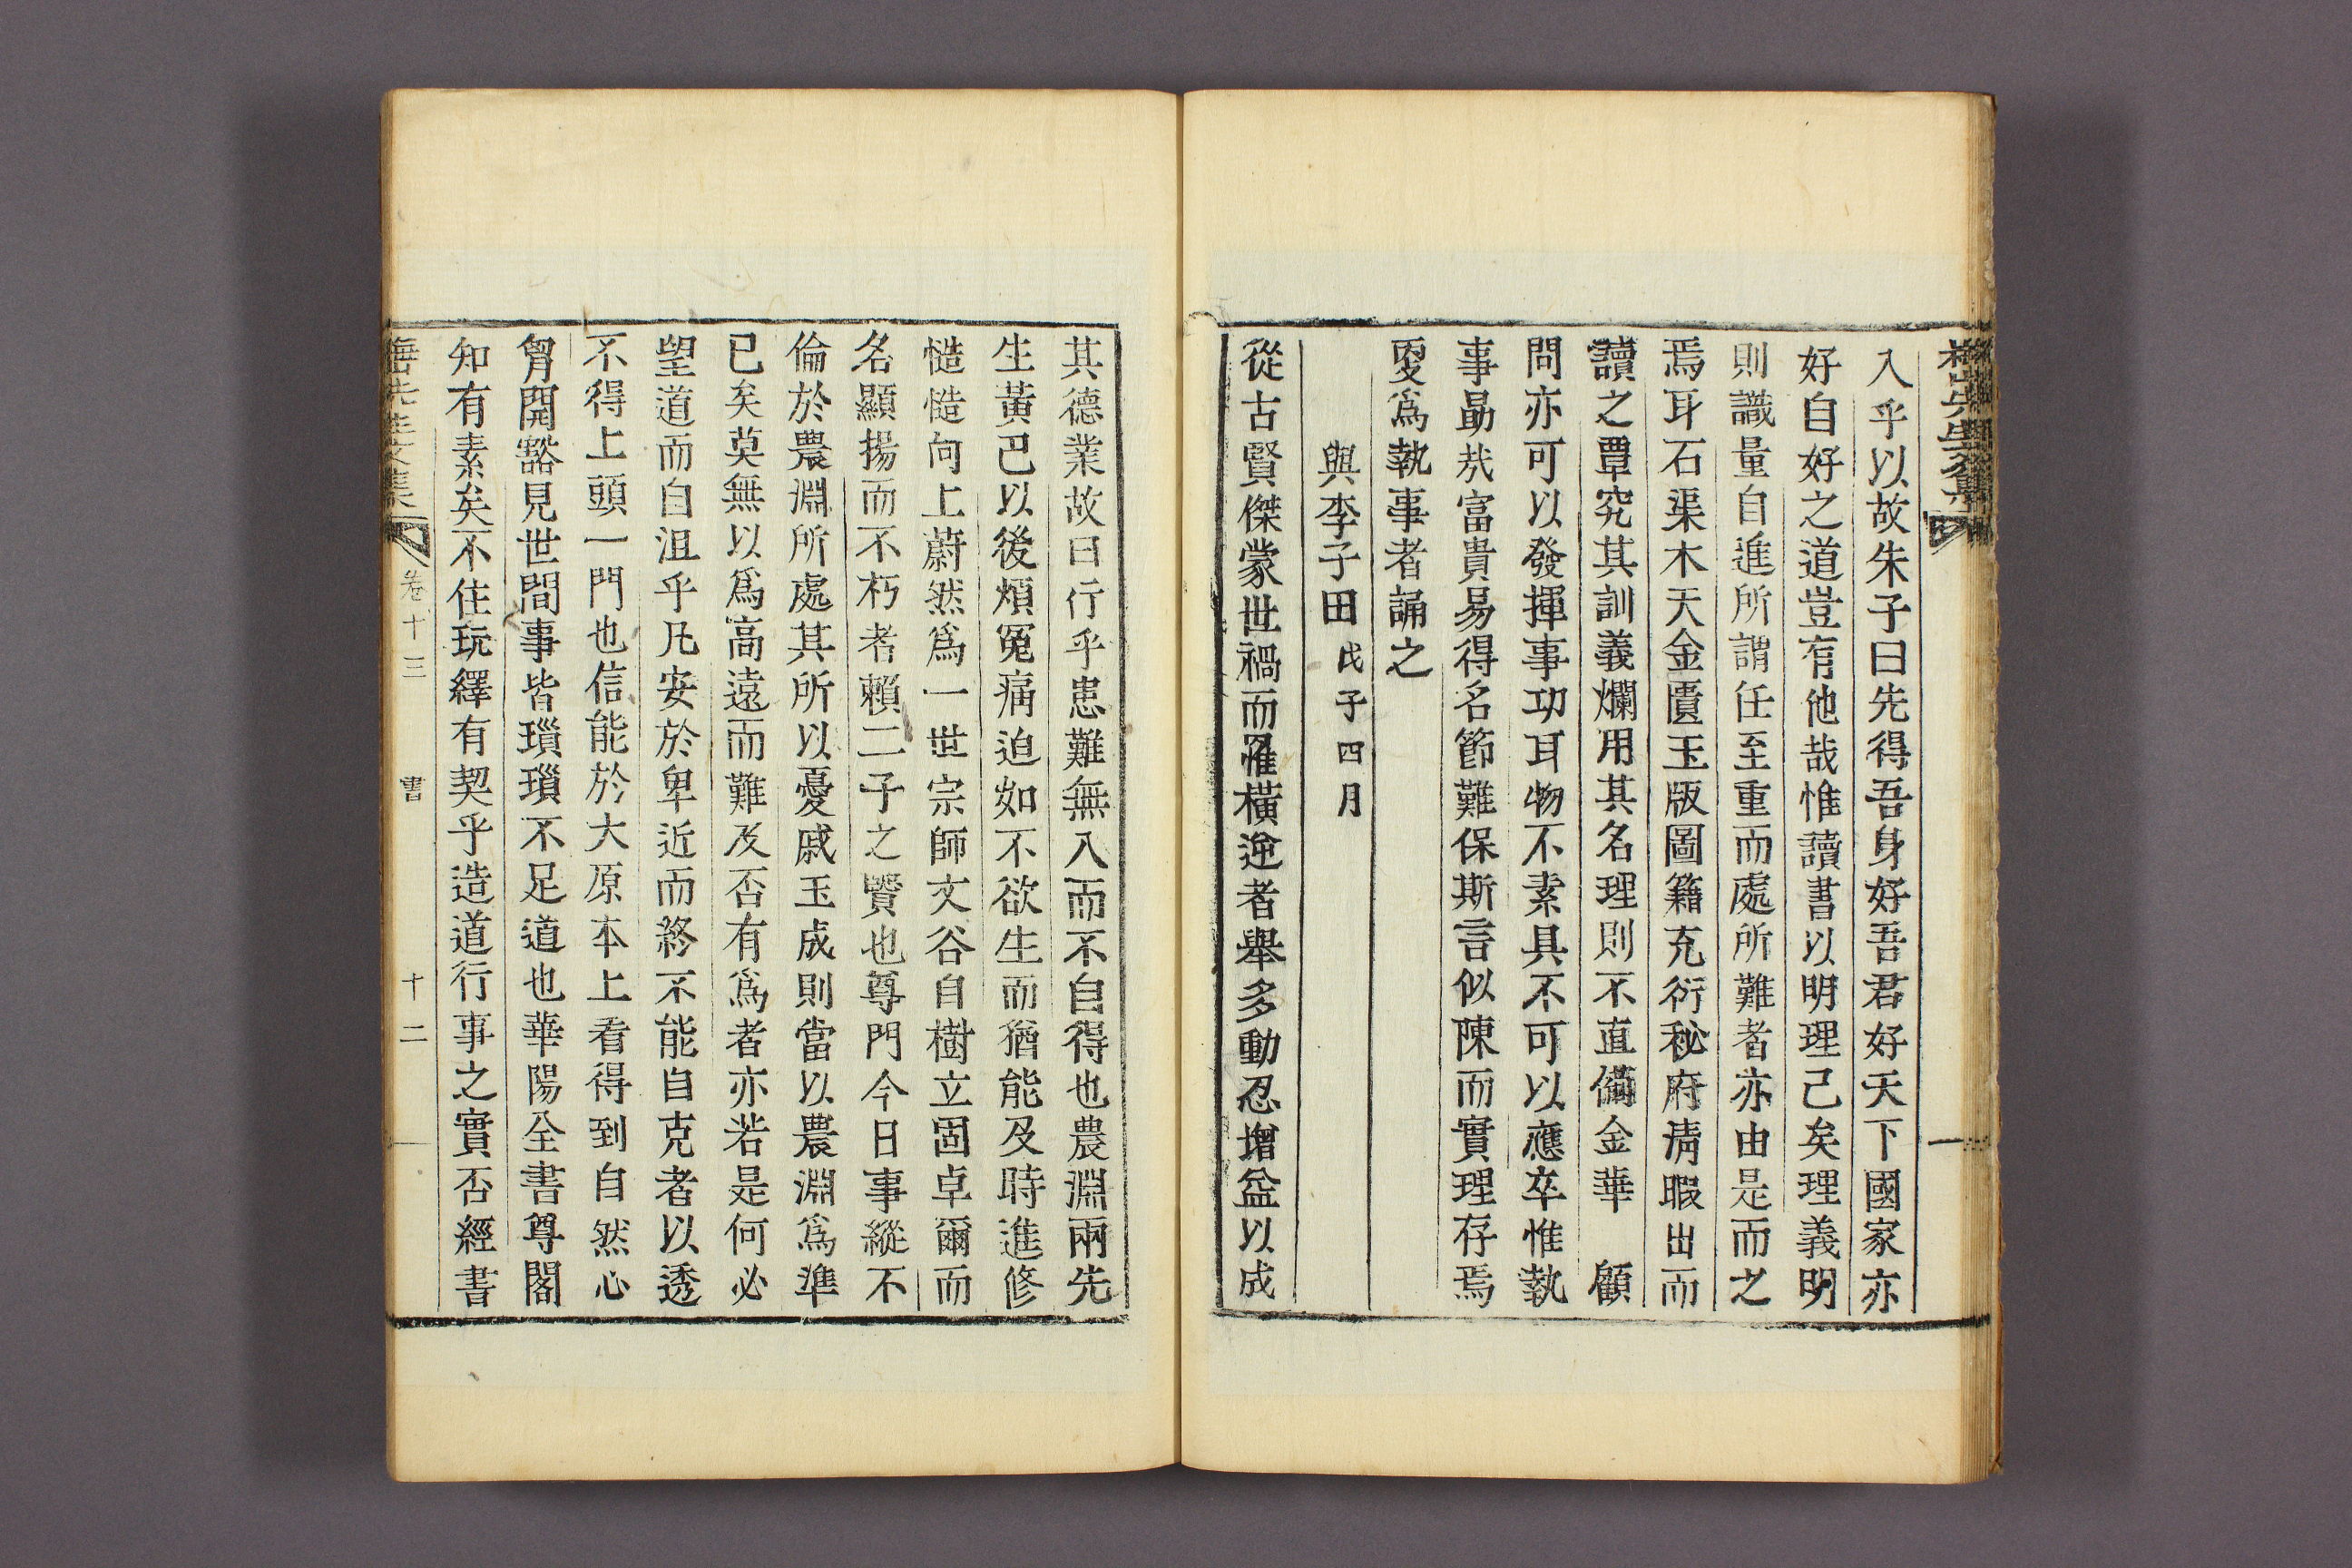 入乎以故朱子曰先得吾身好吾君好天下國家亦
好自好之道豈有他哉惟讀書以明理己矣理義明
則識量自進所謂任至重而處所難者亦由是而之
焉耳石渠木天金匱玉版圖籍充衍秘府淸暇出而
讀之覃究其訓義爛用其名理則不直備金華　顧
問亦可以發揮事功耳物不素具不可以應卒惟執
事勗哉富貴易得名節難保斯言似陳而實理存焉
更爲執事者誦之
與李子田戊子四月
從古賢傑蒙世禍而罹橫逆者舉多動忍增益以成
其德業故曰行乎患難無入而不自得也農淵兩先
生黃巳以後煩冤痛迫如不欲生而猶能及時進修
慥慥向上蔚然爲一世宗師文谷自樹立固卓爾而
名顯揚而不朽者賴二子之賢也尊門今日事縱不
倫於農淵所處其所以憂戚玉成則當以農淵爲準
已矣莫無以爲高遠而難及否有爲者亦若是何必
望道而自沮乎凡安於卑近而終不能自克者以透
不得上頭一門也信能於大原本上看得到自然心
胷開豁見世間事皆瑣瑣不足道也華陽全書尊閣
知有素矣不住玩繹有契乎造道行事之實否經書
先生文集　卷十三　書　十二